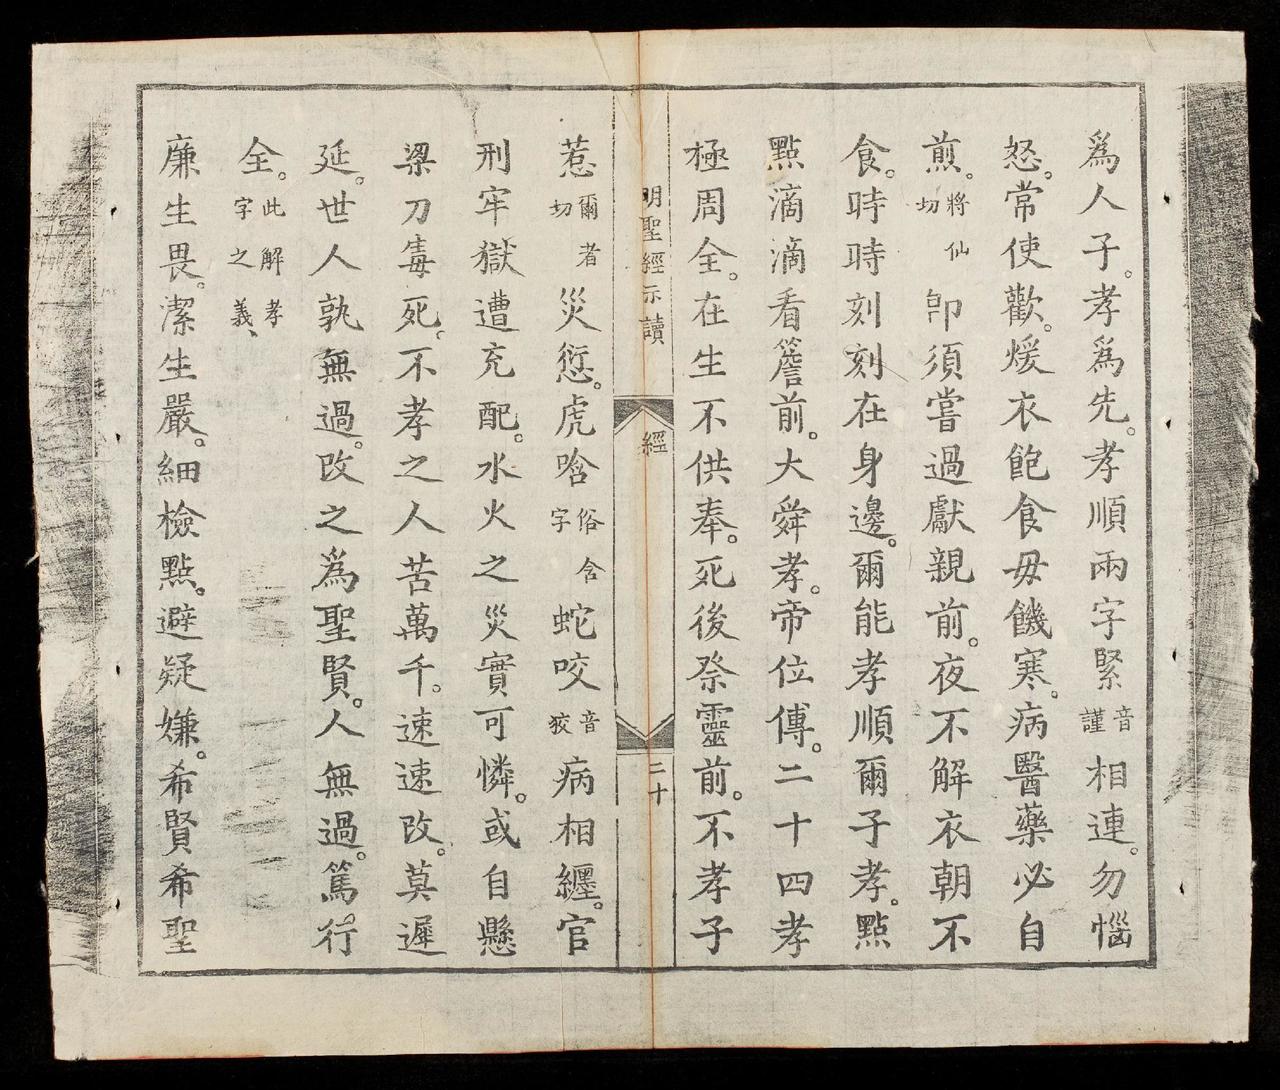 爲人子。孝爲先。孝順兩字緊音謹相連。勿惱
怒。常使歡。煖衣飽食毋饑寒。病醫藥必自
煎。將仙切卽須嘗過獻親前。夜不解衣朝不
食。時時刻刻在身邊。爾能孝順爾子孝。點
點滴滴看簷前。大舜孝。帝位傳。二十四孝
極周全。在生不供奉。死後祭靈前。不孝子
明聖經示讀
經
二十
惹爾者切災愆。虎唅俗含字蛇咬音狡病相纏。官
刑牢獄遭充配。水火之災實可憐。或自懸
梁刀毒死。不孝之人苦萬千。速速改。莫遲
延。世人孰無過。改之爲聖賢。人無過。篤行
全。此解孝字之義、
廉生畏。潔生嚴。細檢點。避疑嫌。希賢希聖